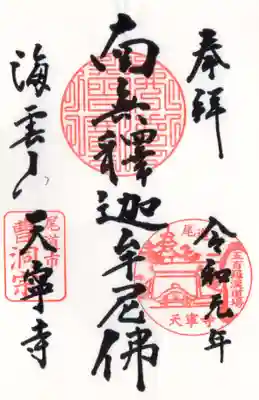 奉拝
令和元年
南無釋迦牟尼佛
海雲山
天寧寺
尾道市
曹洞宗
尾道
五百羅漢道場
天寧寺